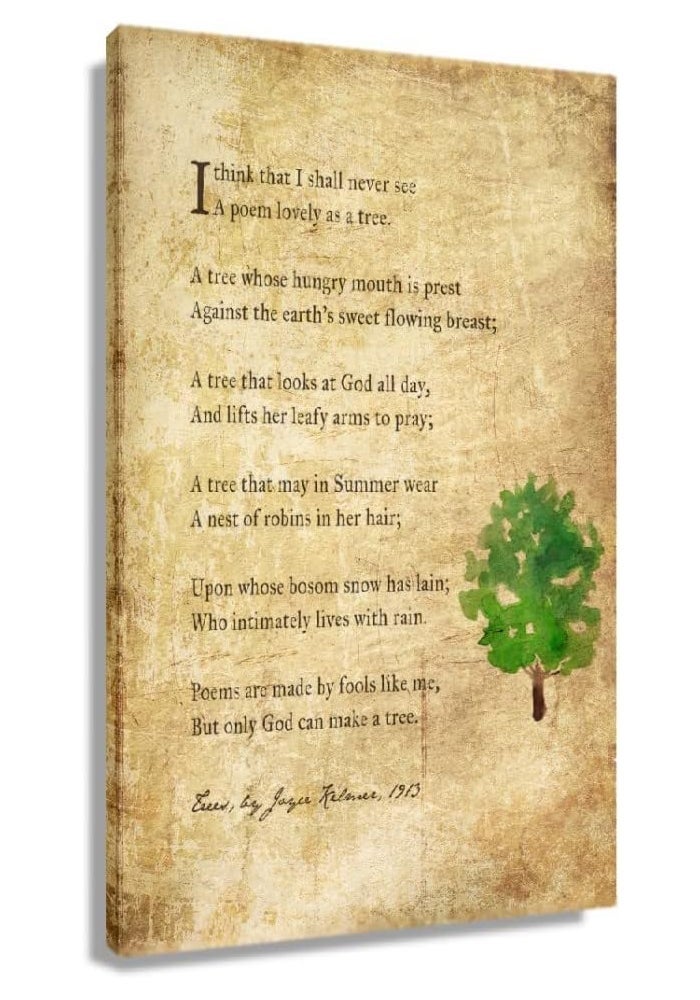 I think that I shall never see
A poem lovely as a tree.
A tree whose hungry mouth is prest
Against the earth's sweet flowing breast;
A tree that looks at God all day,
And lifts her leafy arms to pray;
A tree that may in Summer wear
A nest of robins in her hair;
Upon whose bosom snow has lain;
Who intimately lives with rain.
Poems are made by fools like me,
But only God can make a tree.
Trees, by Joyce Kilmer, 1913